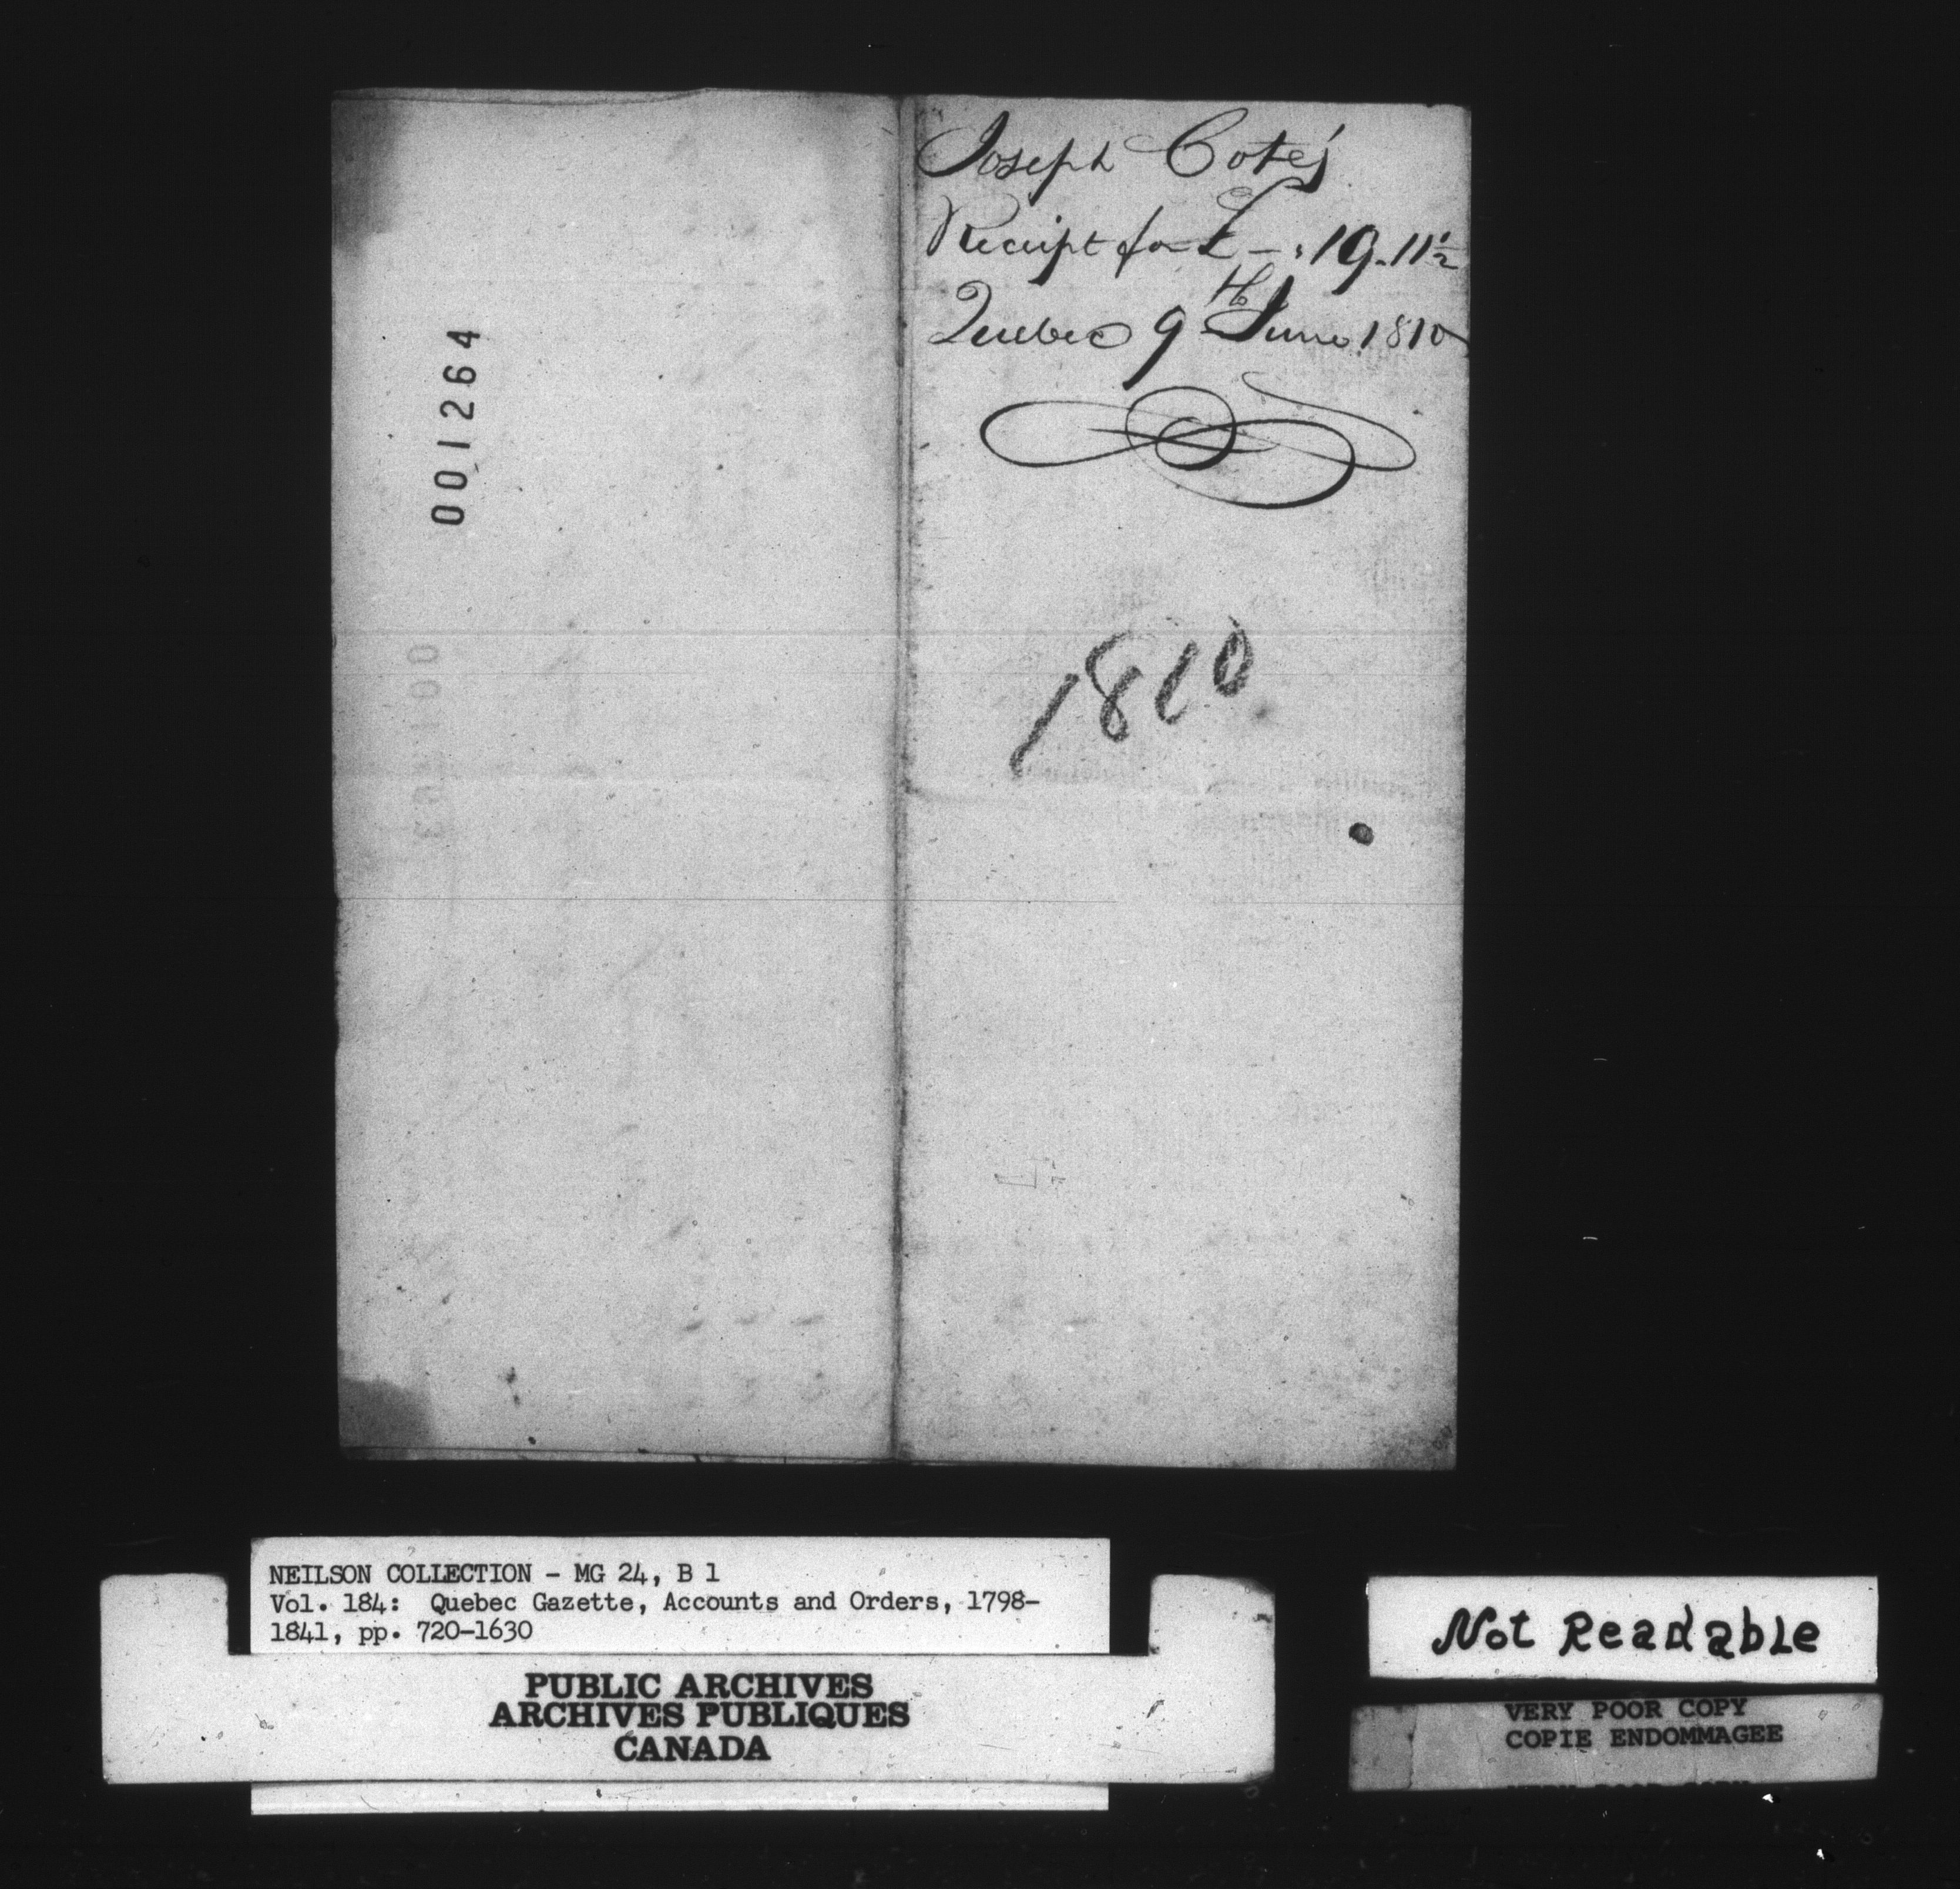 Joseph Cote's
Receipt for £ - " 19 - 11 1/2
Quebec 9th June 1810
001264
1810
NEILSON COLLECTION - MG 24, B 1
Vol. 184: Quebec Gazette, Accounts and Orders, 1798-
1841, pp. 720-1630
PUBLIC ARCHIVES
ARCHIVES PUBLIQUES
CANADA
Not Readable
VERY POOR COPY
COPIE ENDOMMAGEE